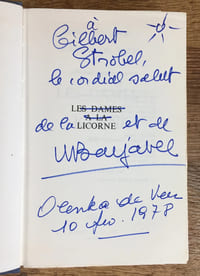 à
Gilbert
Strobel,
le cordial salut
LES DAMES
de la A LA
LICORNE et de
MBarjavel
Olenka de Veer
10 fév. 1978